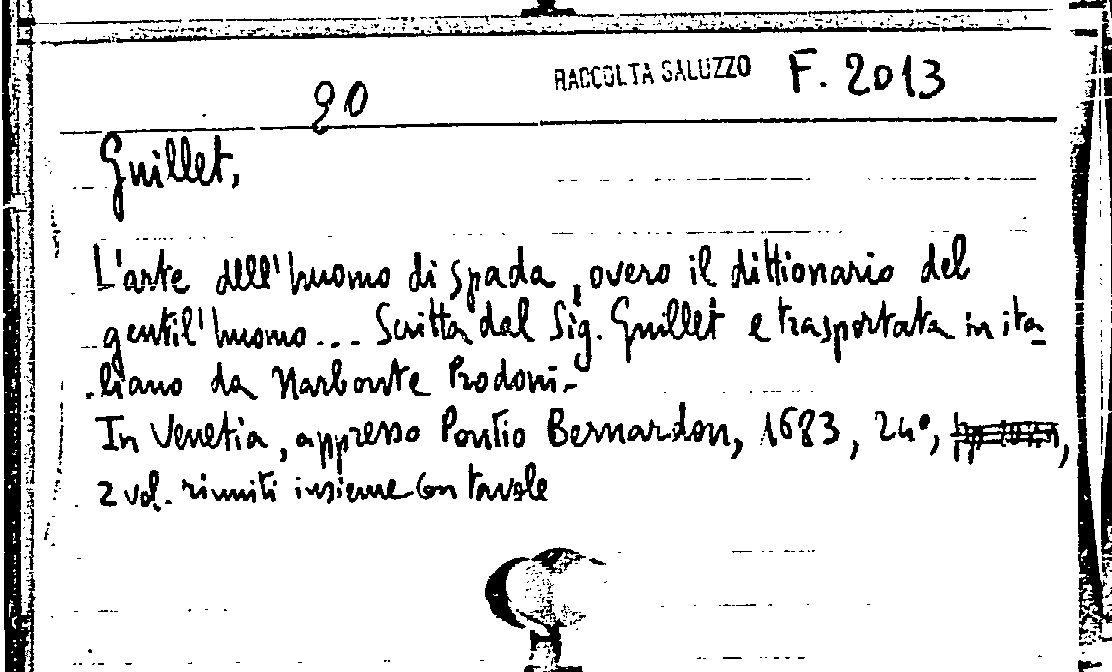 90 RACCOLTA SALUZZO F. 2013
Guillet,
L'arte dell'huomo di spada, overo il dittionario del
gentil'huomo... Scritta dal Sig. Guillet e trasportata in ita-
liano da Narbonte Prodoni.-
In Venetia, appresso Pontio Bernardon, 1683, 24°,
2 vol. riuniti insieme con tavole